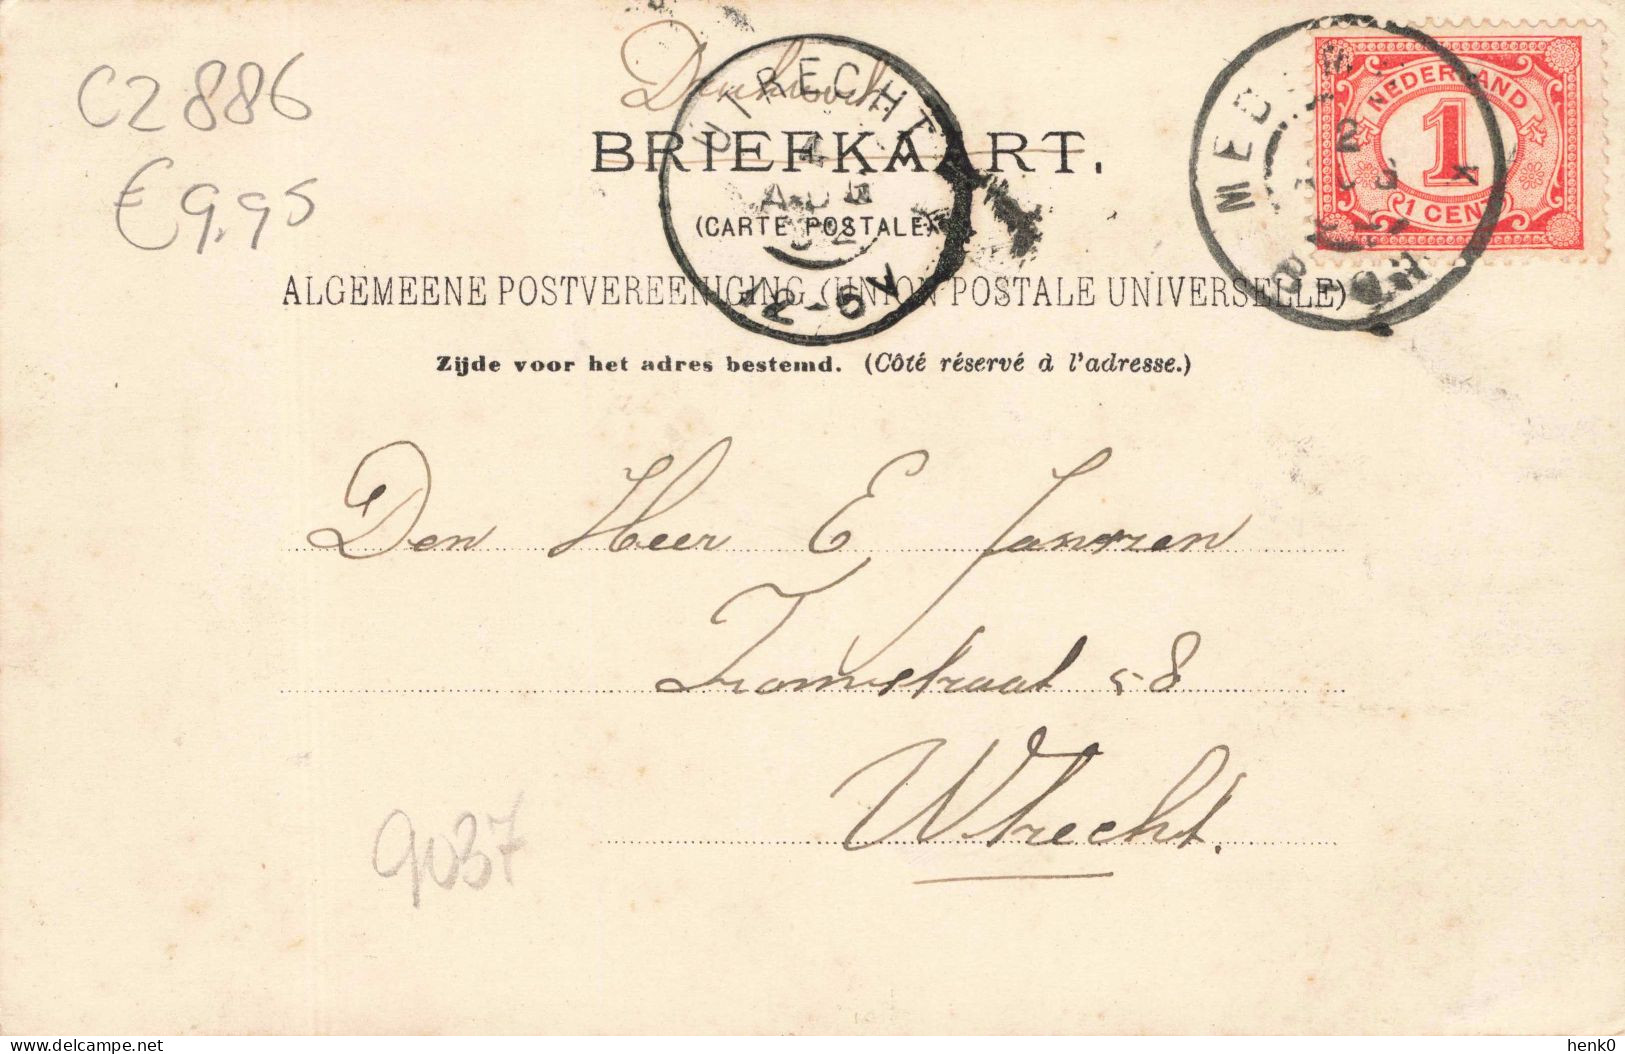 C2886
€ 9,95
BRIEFKAART.
(CARTE POSTALE)
ALGEMEENE POSTVEREENIGING (UNION POSTALE UNIVERSELLE)
Zijde voor het adres bestemd. (Côté réservé à l'adresse.)
UTRECHT
4
AUG
02
12-5V
NEDERLAND
1
1 CENT
2
Den Heer E Janszen
58
Utrecht.
9037
henk0